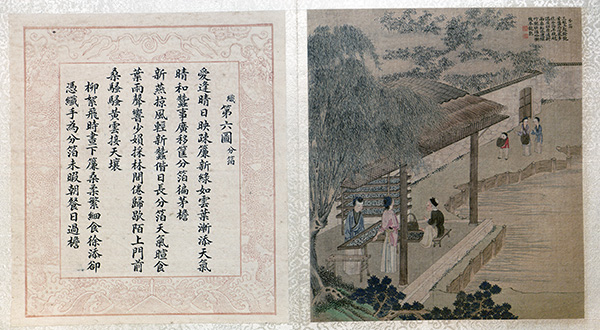 織 第六圖 分箔
愛逢晴日映疎簾新綠如雲葉漸添天氣
晴和蠶事廣移筐分箔徧茅檐
新燕掠風輕新蠶偕日長分箔天氣暄食
葉雨聲響少媍採林間倦歸歇陌上門前
桑騷騷黃雲接天壤
柳絮飛時晝下簾桑柔繁細食徐添卻
憑纖手為分箔未暇朝餐日過檐